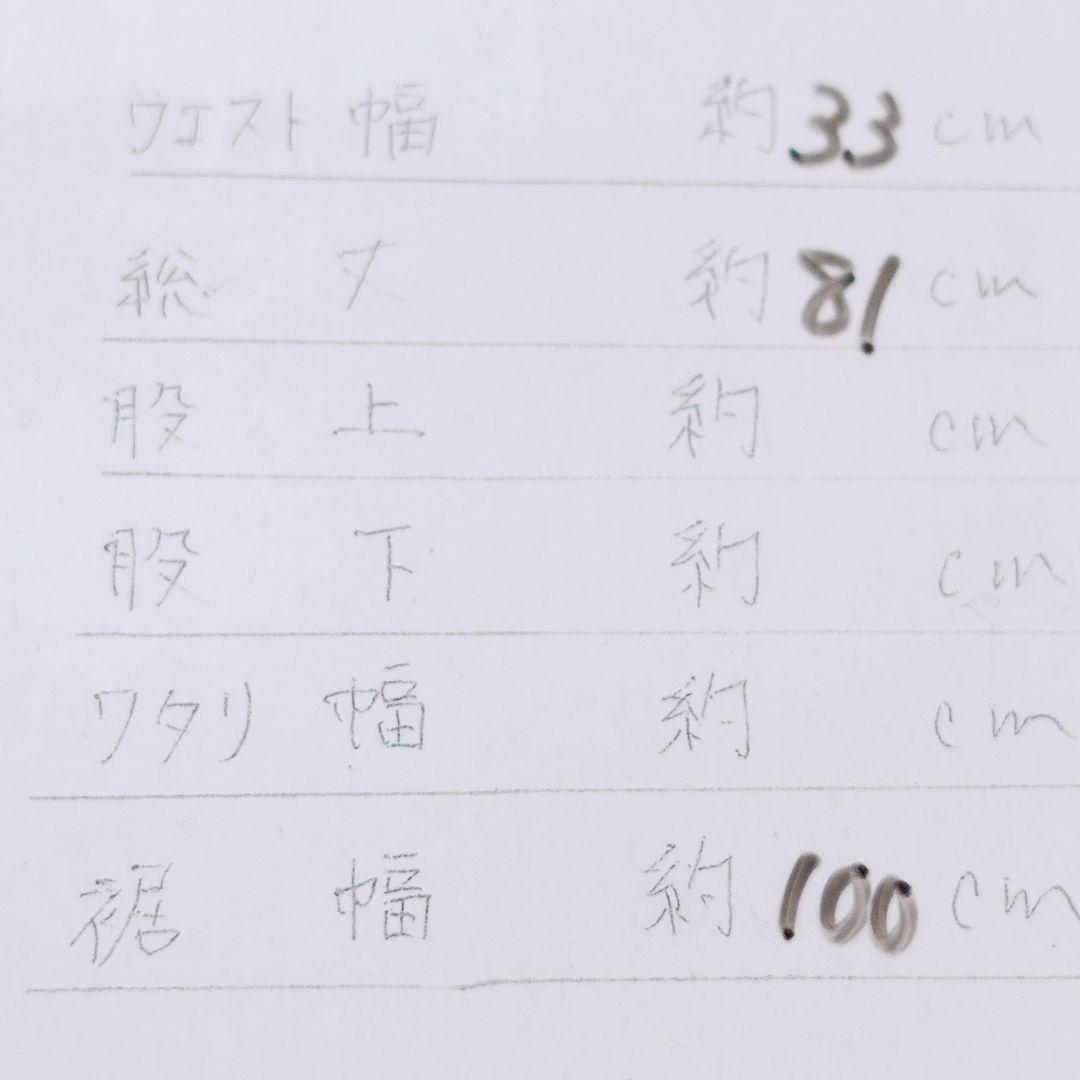 ウエスト幅 約33cm
総丈 約81cm
股上 約 cm
股下 約 cm
ワタリ幅 約 cm
裾幅 約100cm